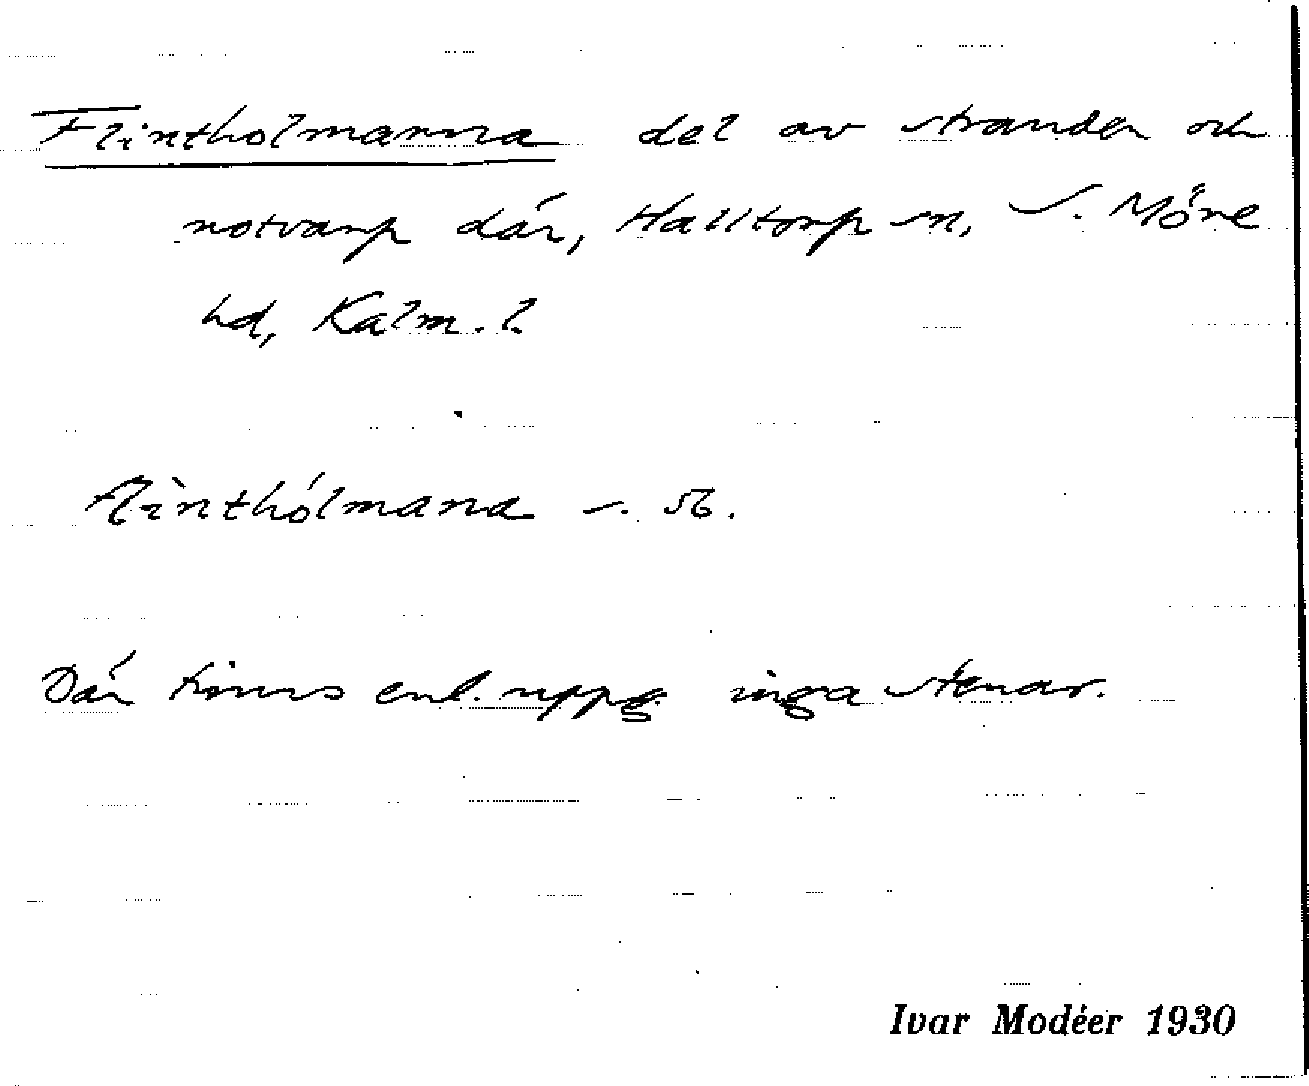 Flintholmarna del av stranden och
notvarp där, Halltorp sn, S. Möre
hd, Kalm. l.
flìnthólmana s. 56.
Där finns enl. uppg inga stenar.
Ivar Modéer 1930